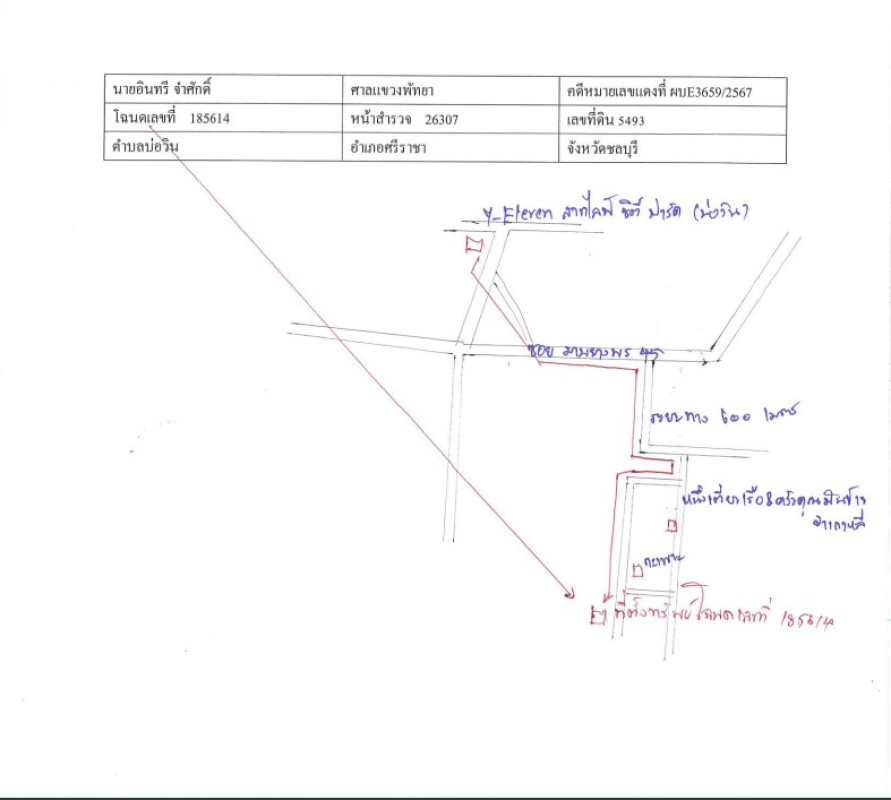 นายอินทรี จำศักดิ์ ศาลแขวงพัทยา คดีหมายเลขแดงที่ ผบE3659/2567
โฉนดเลขที่ 185614 หน้าสำรวจ 26307 เลขที่ดิน 5493
ตำบลบ่อวิน อำเภอศรีราชา จังหวัดชลบุรี
7-Eleven สาทไลฟ์ ซิตี้ ปาร์ค (บ่อวิน)
ซอย มาบยางพร 45
ระยะทาง 600 เมตร
หนึ่งเตี๋ยวเรือ&ครัวคุณ
ที่ตั้งทรัพย์โฉนดเลขที่ 185614